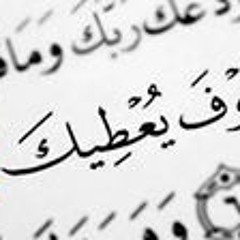 ودعك ربك وما
وْفَ يُعْطِيكَ